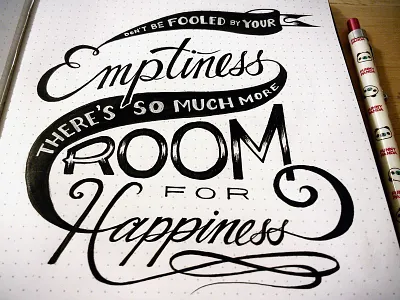 DON'T BE FOOLED BY YOUR
Emptiness
THERE'S SO MUCH MORE
ROOM
FOR
Happiness